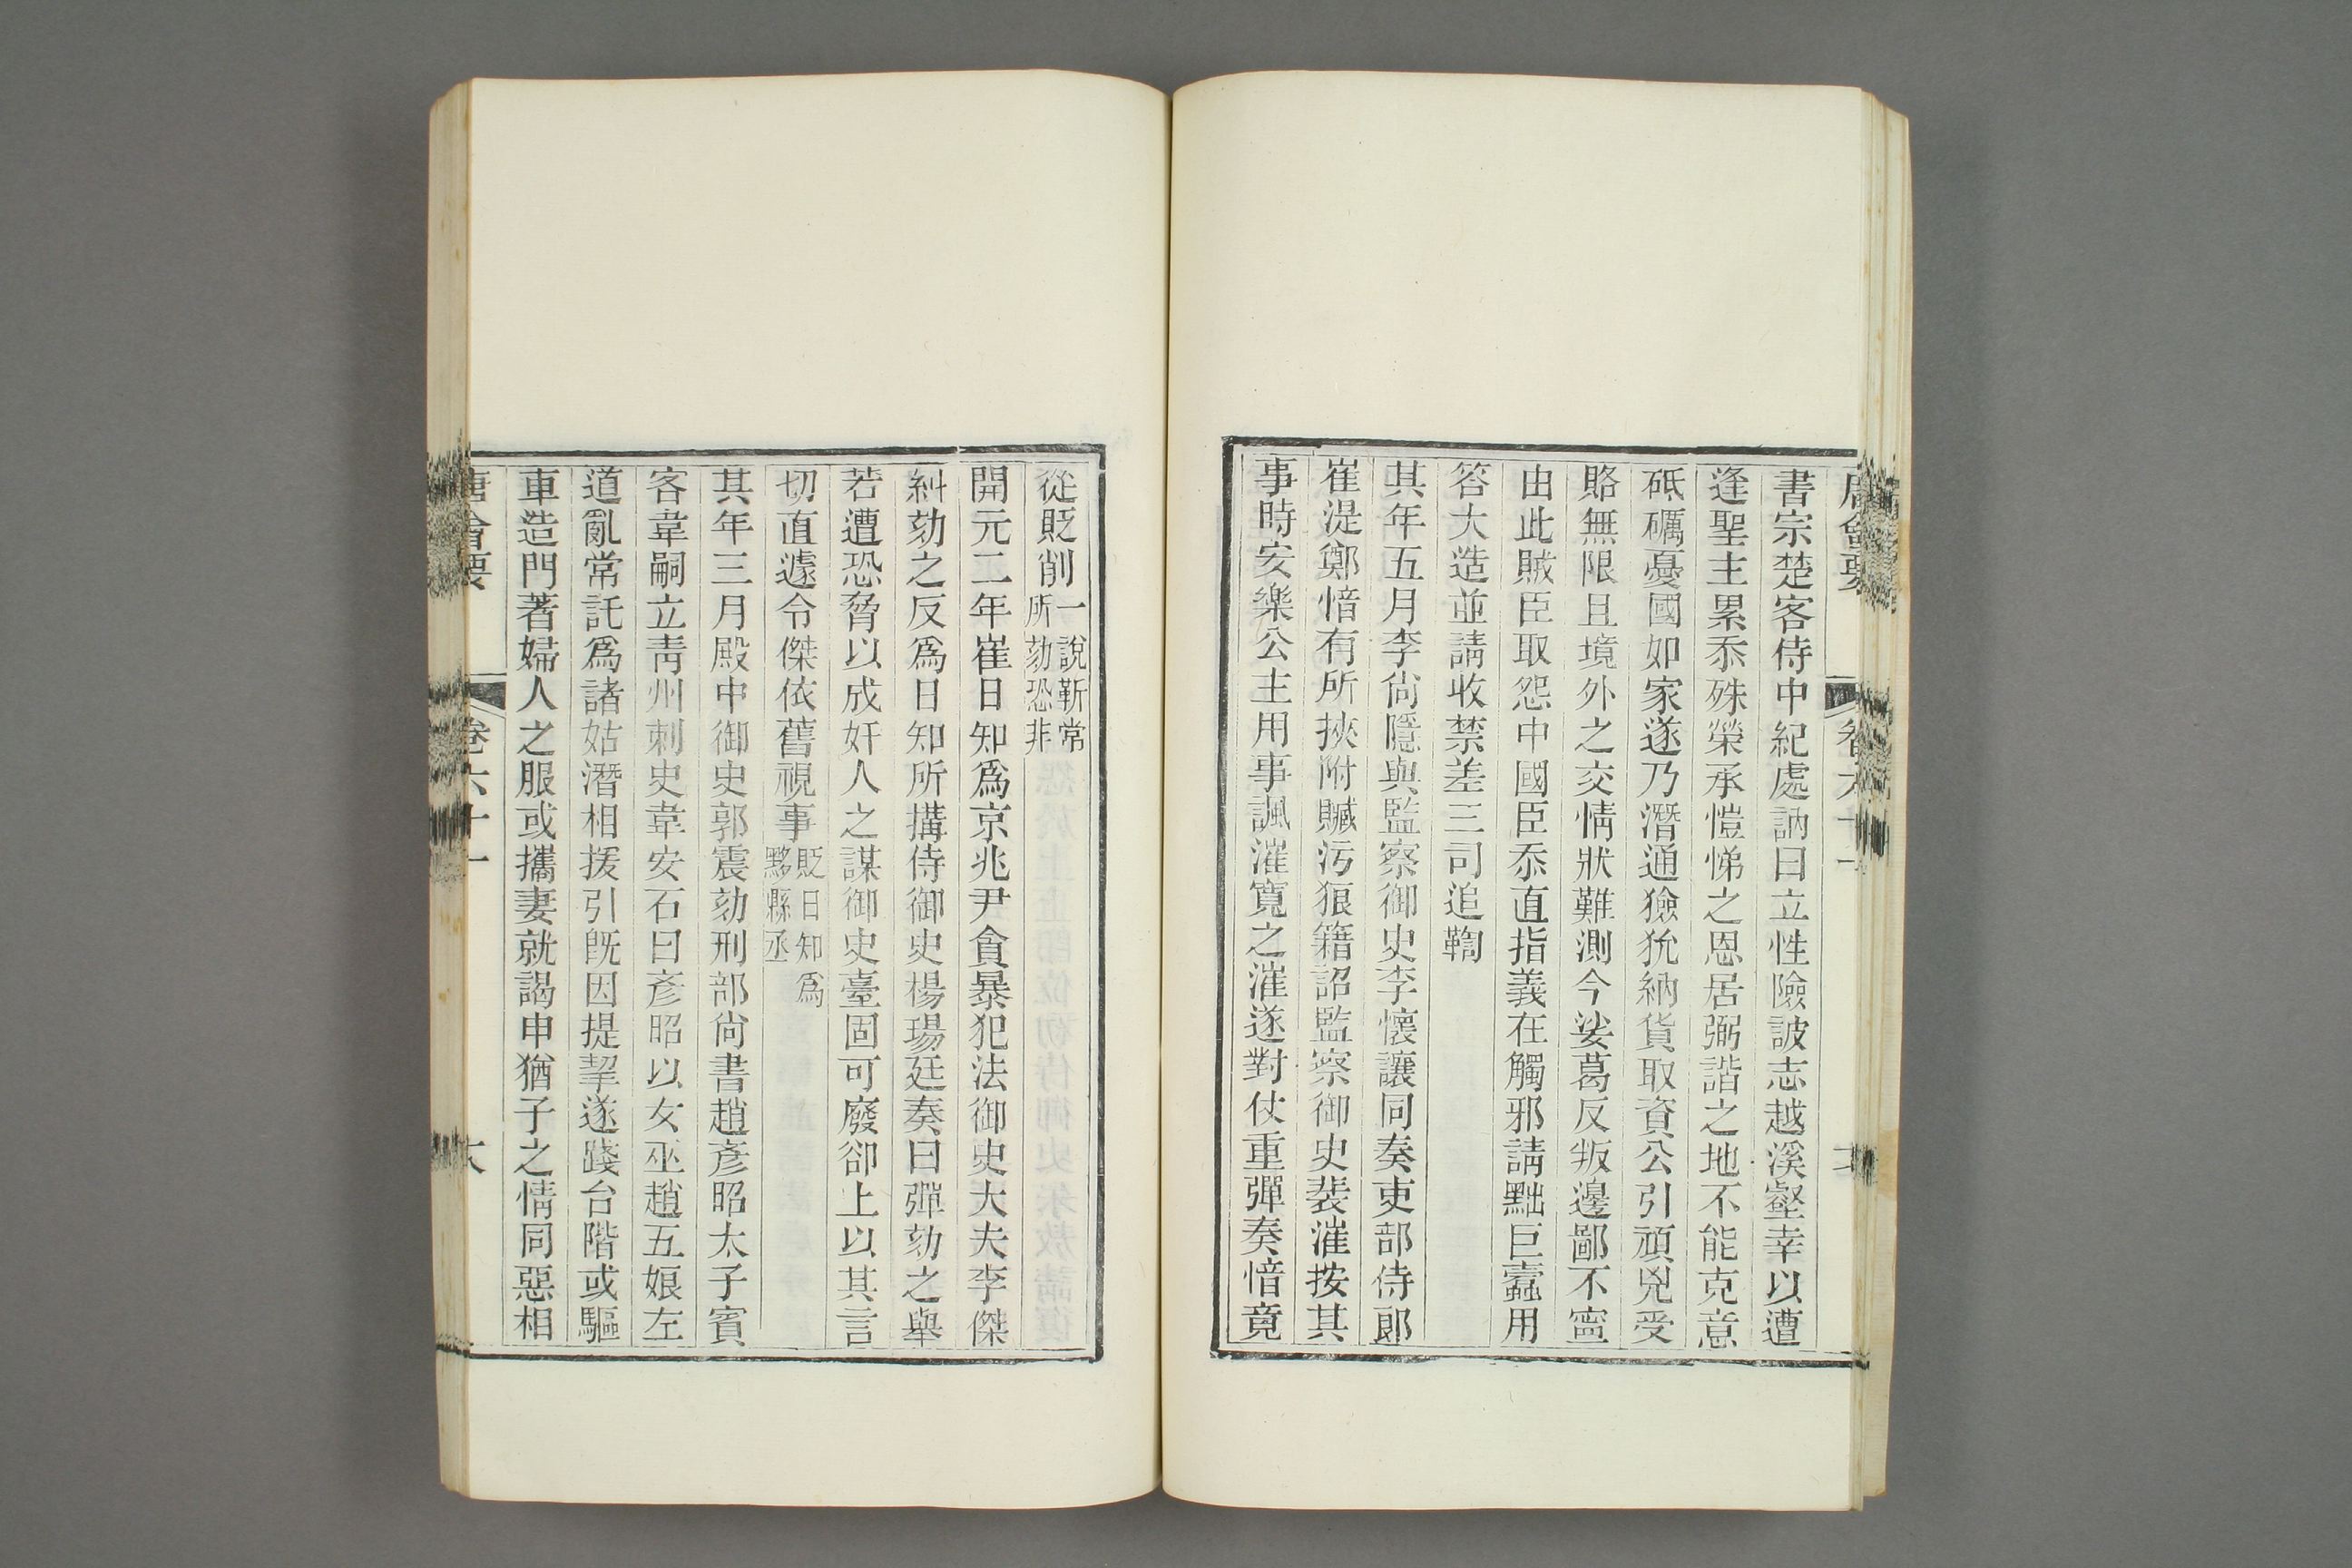 唐會要 卷六十一
書宗楚客侍中紀處訥曰立性險詖志越溪壑幸以遭
逢聖主累忝殊榮承愷悌之恩居弼諧之地不能克意
砥礪憂國如家遂乃潛通獫狁納貨取資公引頑兇受
賂無限且境外之交情狀難測今娑葛反叛邊鄙不寧
由此賊臣取怨中國臣忝直指義在觸邪請黜巨蠹用
答大造並請收禁差三司追鞫
其年五月李尙隱與監察御史李懷讓同奏吏部侍郎
崔湜鄭愔有所挾附贓污狼籍詔監察御史裴漼按其
事時安樂公主用事諷漼寬之漼遂對仗重彈奏愔竟
從貶削一說靳常
所劾恐非
開元二年崔日知爲京兆尹貪暴犯法御史大夫李傑
糾劾之反爲日知所搆侍御史楊瑒廷奏曰彈劾之舉
若遭恐脅以成奸人之謀御史臺固可廢卻上以其言
切直遽令傑依舊視事貶日知爲
黟縣丞
其年三月殿中御史郭震劾刑部尙書趙彥昭太子賓
客韋嗣立靑州刺史韋安石曰彥昭以女巫趙五娘左
道亂常託爲諸姑潛相援引旣因提挈遂踐台階或驅
車造門著婦人之服或攜妻就謁申猶子之情同惡相
唐會要 卷六十一 大